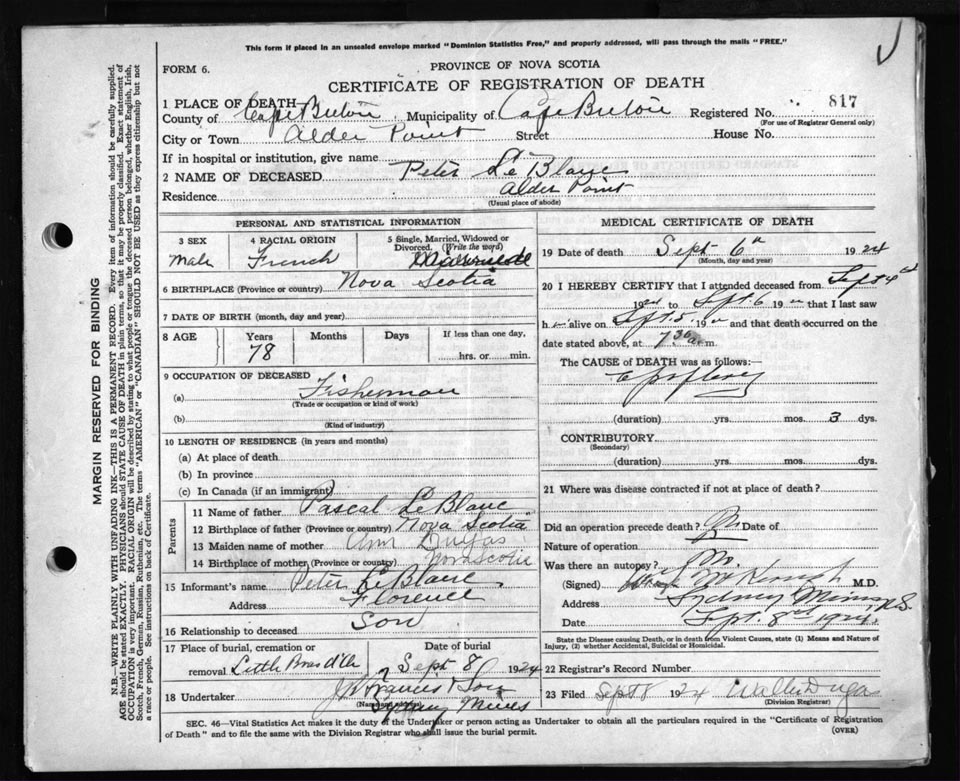 This form if placed in an unsealed envelope marked "Dominion Statistics Free," and properly addressed, will pass through the mails "FREE."
FORM 6.
PROVINCE OF NOVA SCOTIA
CERTIFICATE OF REGISTRATION OF DEATH
1 PLACE OF DEATH—
County of Cape Breton Municipality of Cape Breton Registered No. 817
(For use of Registrar General only)
City or Town Alder Point Street House No.
If in hospital or institution, give name
2 NAME OF DECEASED Peter Le Blanc
Residence Alder Point
(Usual place of abode)
PERSONAL AND STATISTICAL INFORMATION
3 SEX
Male
4 RACIAL ORIGIN
French
5 Single, Married, Widowed or
Divorced. (Write the word)
6 BIRTHPLACE (Province or country) Nova Scotia
7 DATE OF BIRTH (month, day and year)
8 AGE Years Months Days If less than one day,
78 hrs. or min.
9 OCCUPATION OF DECEASED
(a) Fisherman
(Trade or occupation or kind of work)
(b)
(Kind of industry)
10 LENGTH OF RESIDENCE (in years and months)
(a) At place of death
(b) In province
(c) In Canada (if an immigrant)
Parents
11 Name of father Pascal LeBlanc
12 Birthplace of father (Province or country) Nova Scotia
13 Maiden name of mother Ann Dugas
14 Birthplace of mother (Province or country) Nova Scotia
15 Informant's name Peter LeBlanc
Address Florence
16 Relationship to deceased Son
17 Place of burial, cremation or Date of burial
removal Little Bras d'Or Sept 8 1924
18 Undertaker & Son
(Name and address)
Sydney Mines
MEDICAL CERTIFICATE OF DEATH
19 Date of death Sept 6th 1924
(Month, day and year)
20 I HEREBY CERTIFY that I attended deceased from Sept 4
1924 to Sept. 6 19 that I last saw
h alive on Sept. 5 19 and that death occurred on
date stated above, at 7 30 a.m.
The CAUSE of DEATH was as follows:
(duration) yrs. mos. 3 dys.
CONTRIBUTORY
(Secondary)
(duration) yrs. mos. dys.
21 Where was disease contracted if not at place of death?
Did an operation precede death? Date of
Nature of operation
Was there an autopsy?
(Signed) M.D.
Address Sydney Mines N.S.
Date Sept. 8 1924
State the Disease causing Death, or in death from Violent Causes, state (1) Means and Nature of
Injury, (ii) whether Accidental, Suicidal or Homicidal.
22 Registrar's Record Number
23 Filed Sept 8 1924 Walter Dugas
(Division Registrar)
SEC. 46—Vital Statistics Act makes it the duty of the Undertaker or person acting as Undertaker to obtain all the particulars required in the "Certificate of Registration
of Death" and to file the same with the Division Registrar who shall issue the burial permit.
(OVER)
MARGIN RESERVED FOR BINDING
N.B.—WRITE PLAINLY WITH UNFADING INK—THIS IS A PERMANENT RECORD. Every item of information should be carefully supplied.
AGE should be stated EXACTLY. PHYSICIANS should STATE CAUSE OF DEATH in plain terms, so that it may be properly classified. Exact statement of
OCCUPATION is very important. RACIAL ORIGIN will be described by stating to what people or tongue the deceased person belonged, whether English, Irish,
Scotch, French, German, Russian, Ruthenian, etc. The terms "AMERICAN" or "CANADIAN" SHOULD NOT BE USED as they express citizenship but not
a race or people. See instructions on back of Certificate.